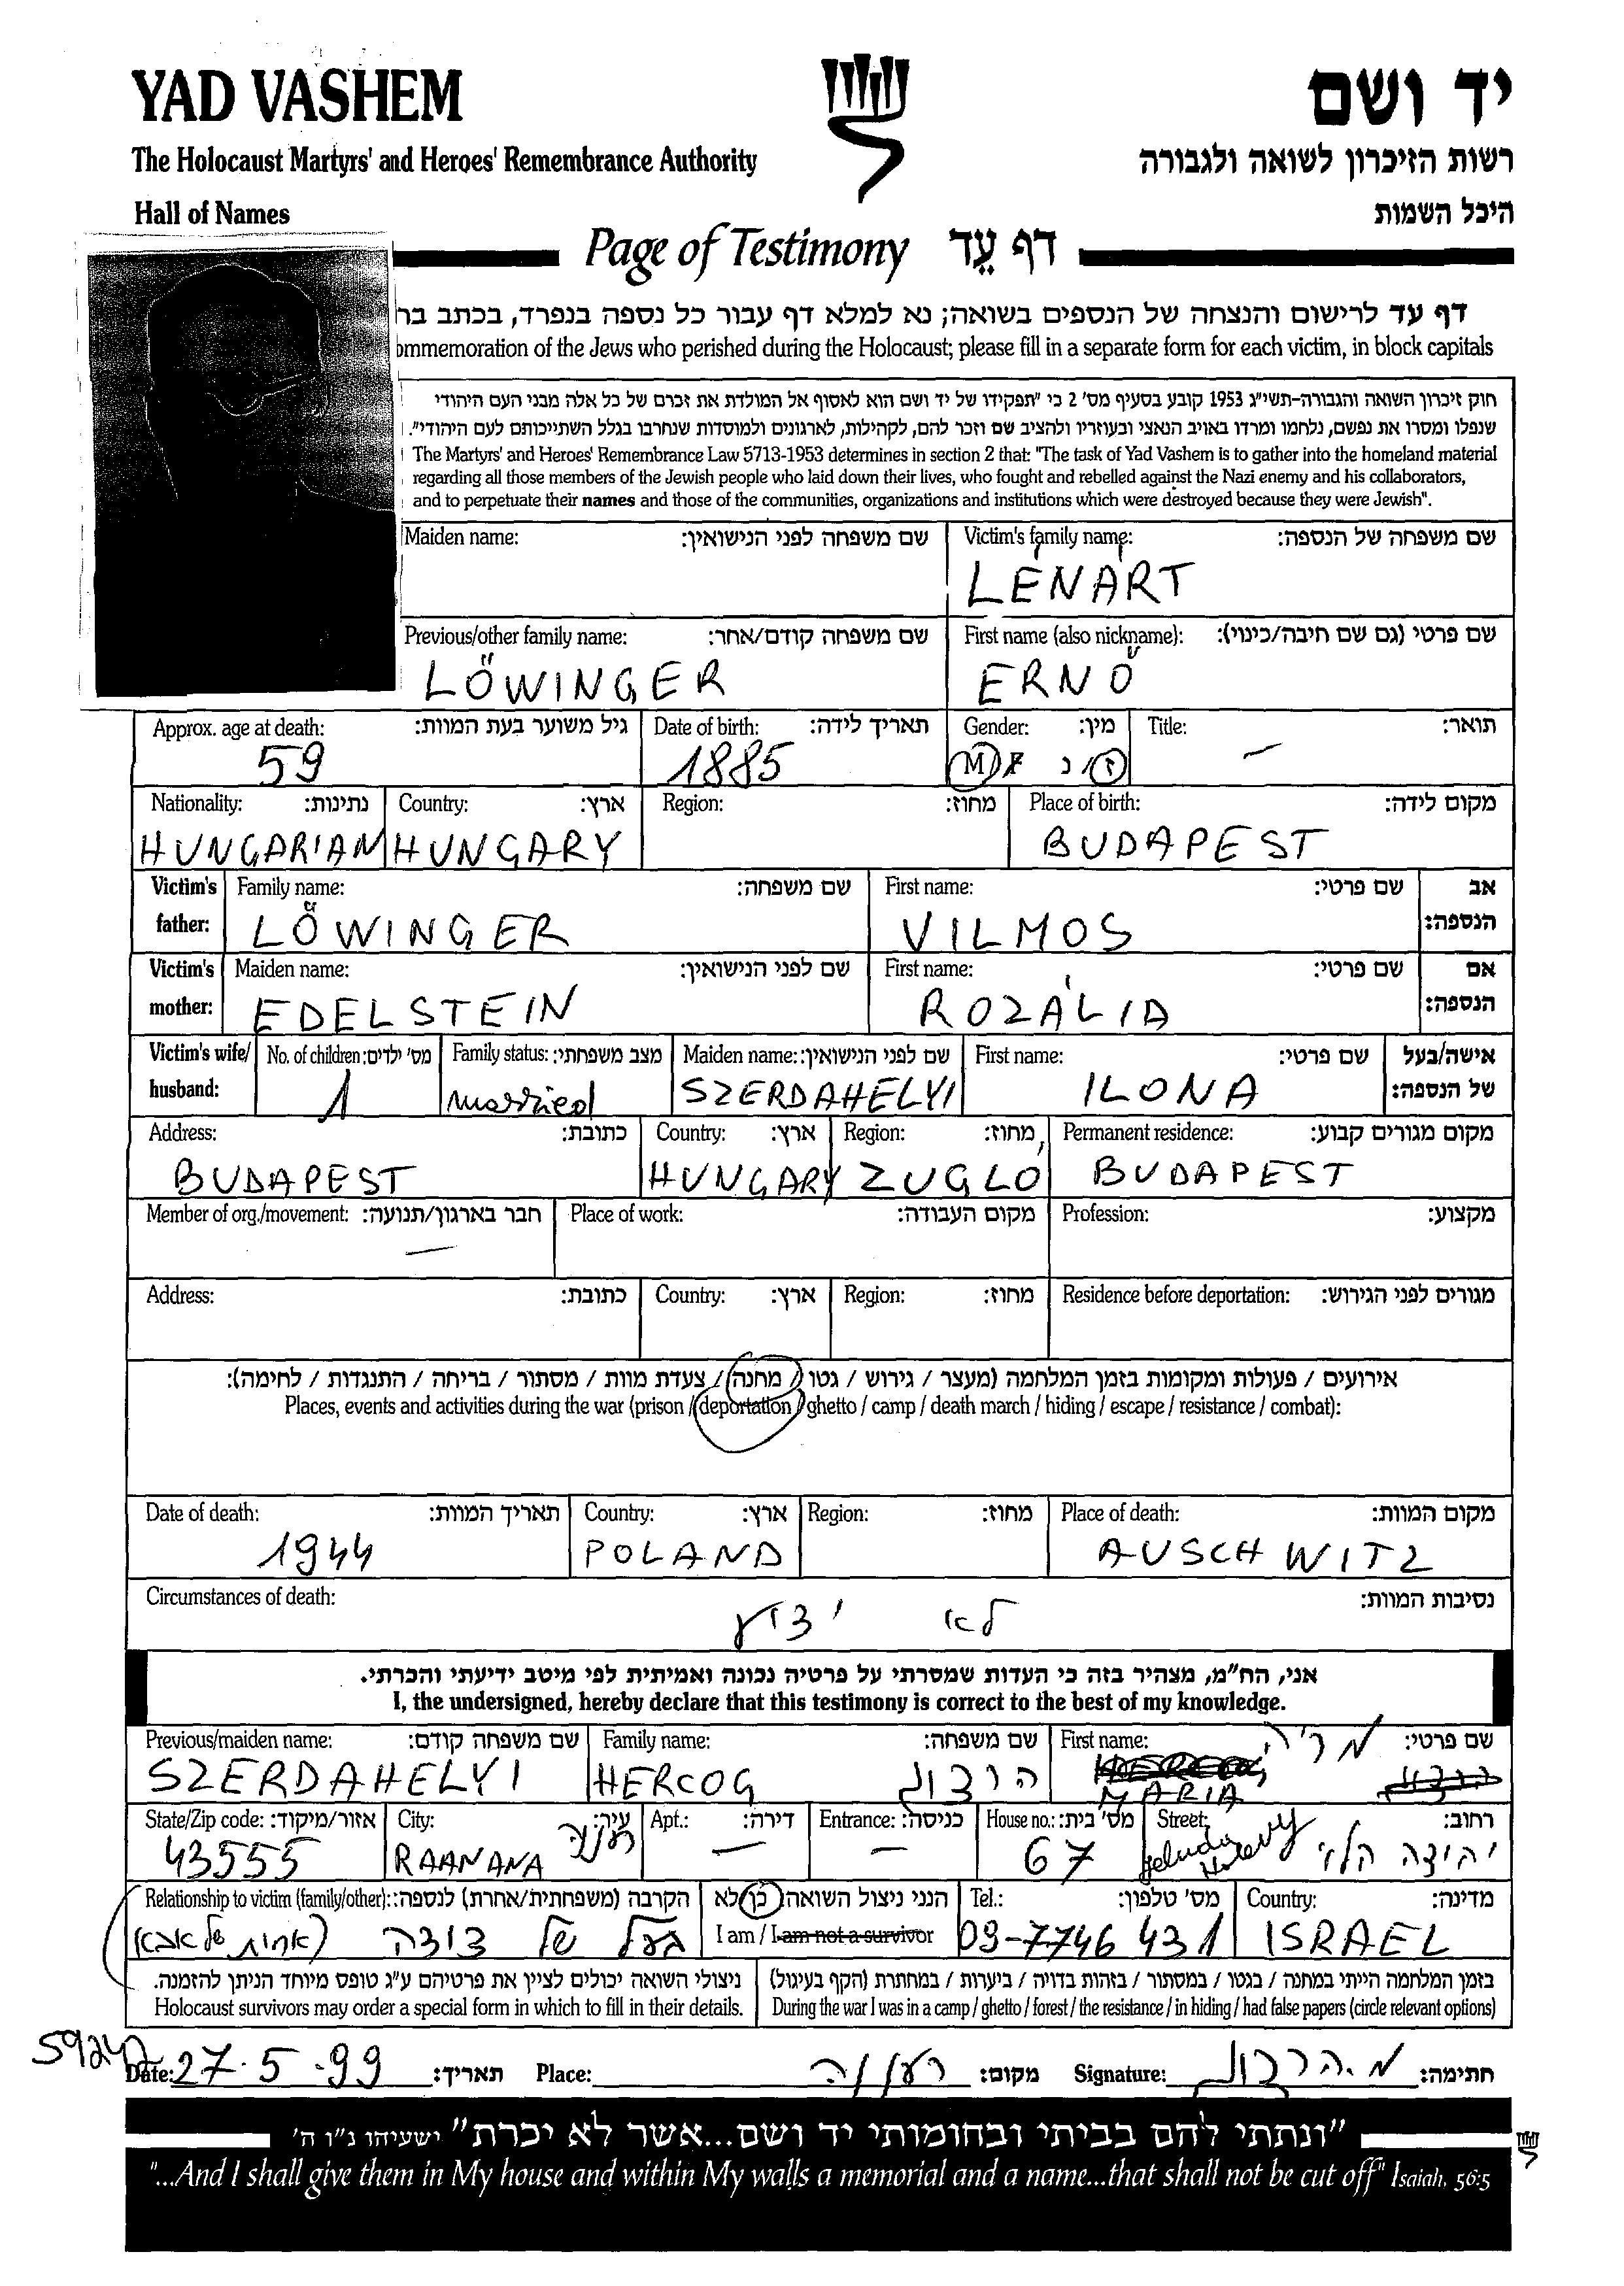 YAD VASHEM
יד ושם
The Holocaust Martyrs' and Heroes' Remembrance Authority
רשות הזיכרון לשואה ולגבורה
Hall of Names
היכל השמות
Page of Testimony דף עֵד
דף עד לרישום והנצחה של הנספים בשואה; נא למלא דף עבור כל נספה בנפרד, בכתב בר
ommemoration of the Jews who perished during the Holocaust; please fill in a separate form for each victim, in block capitals
חוק זיכרון השואה והגבורה-תשי"ג 1953 קובע בסעיף מס' 2 כי "תפקידו של יד ושם הוא לאסוף אל המולדת את זכרם של כל אלה מבני העם היהודי
שנפלו ומסרו את נפשם, נלחמו ומרדו באויב הנאצי ובעוזריו ולהציב שם וזכר להם, לקהילות, לארגונים ולמוסדות שנחרבו בגלל השתייכותם לעם היהודי".
The Martyrs' and Heroes' Remembrance Law 5713-1953 determines in section 2 that: "The task of Yad Vashem is to gather into the homeland material
regarding all those members of the Jewish people who laid down their lives, who fought and rebelled against the Nazi enemy and his collaborators,
and to perpetuate their names and those of the communities, organizations and institutions which were destroyed because they were Jewish".
Maiden name: שם משפחה לפני הנישואין: Victim's family name: שם משפחה של הנספה:
LÉNÁRT
Previous/other family name: שם משפחה קודם/אחר: First name (also nickname): שם פרטי (גם שם חיבה/כינוי):
LŐWINGER ERNŐ
Approx. age at death: גיל משוער בעת המוות: Date of birth: תאריך לידה: Gender: מין: Title: תואר:
59 1885 M/F ז/נ —
Nationality: נתינות: Country: ארץ: Region: מחוז: Place of birth: מקום לידה:
HUNGARIAN HUNGARY BUDAPEST
Victim's father: Family name: שם משפחה: First name: שם פרטי: אב הנספה:
LŐWINGER VILMOS
Victim's mother: Maiden name: שם לפני הנישואין: First name: שם פרטי: אם הנספה:
EDELSTEIN ROZÁLIA
Victim's wife/husband: No. of children: מס' ילדים: Family status: מצב משפחתי: Maiden name: שם לפני הנישואין: First name: שם פרטי: אישה/בעל של הנספה:
1 married SZERDAHELYI ILONA
Address: כתובת: Country: ארץ: Region: מחוז: Permanent residence: מקום מגורים קבוע:
BUDAPEST HUNGARY ZUGLÓ BUDAPEST
Member of org./movement: חבר בארגון/תנועה: Place of work: מקום העבודה: Profession: מקצוע:
—
Address: כתובת: Country: ארץ: Region: מחוז: Residence before deportation: מגורים לפני הגירוש:
אירועים / פעולות ומקומות בזמן המלחמה (מעצר / גירוש / גטו / מחנה / צעדת מוות / מסתור / בריחה / התנגדות / לחימה):
Places, events and activities during the war (prison / deportation / ghetto / camp / death march / hiding / escape / resistance / combat):
Date of death: תאריך המוות: Country: ארץ: Region: מחוז: Place of death: מקום המוות:
1944 POLAND AUSCHWITZ
Circumstances of death: נסיבות המוות:
לא ידוע
אני, הח"מ, מצהיר בזה כי העדות שמסרתי על פרטיה נכונה ואמיתית לפי מיטב ידיעתי והכרתי.
I, the undersigned, hereby declare that this testimony is correct to the best of my knowledge.
Previous/maiden name: שם משפחה קודם: Family name: שם משפחה: First name: שם פרטי:
SZERDAHELYI HERCOG הרצוג MARIA מריה
State/Zip code: אזור/מיקוד: City: עיר: Apt.: דירה: Entrance: כניסה: House no.: מס' בית: Street: רחוב:
43555 RAANANA רעננה — — 67 יהודה הלוי
Relationship to victim (family/other): הקרבה (משפחתית/אחרת) לנספה: הנני ניצול השואה: כן/לא Tel.: מס' טלפון: Country: מדינה:
בעל של דודה (אחות של אבא) I am / I am not a survivor 09-7746 431 ISRAEL
ניצולי השואה יכולים לציין את פרטיהם ע"ג טופס מיוחד הניתן להזמנה. בזמן המלחמה הייתי במחנה / בגטו / במסתור / בזהות בדויה / ביערות / במחתרת (הקף בעיגול)
Holocaust survivors may order a special form in which to fill in their details. During the war I was in a camp / ghetto / forest / the resistance / in hiding / had false papers (circle relevant options)
Date: 27.5.99 תאריך: Place: רעננה מקום: Signature: מ. הרצוג חתימה:
"ונתתי להם בביתי ובחומותי יד ושם...אשר לא יכרת" ישעיהו נ"ו ה'
"...And I shall give them in My house and within My walls a memorial and a name...that shall not be cut off" Isaiah, 56:5